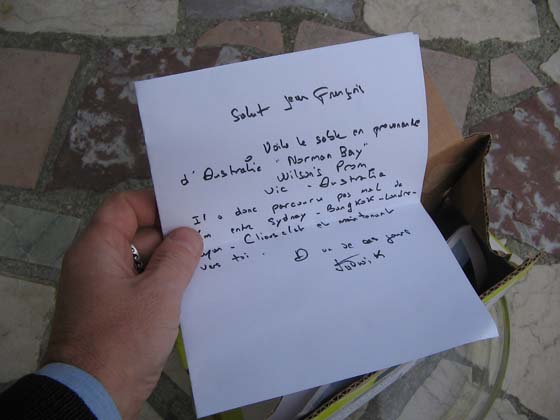 Salut jean François
Voila le sable en provenance
d'Australie "Norman Bay"
Wilson's Prom
Vic - Australia
Il a donc parcouru pas mal de
km entre Sydney - Bangkok - Londre -
et maintenant
vers toi. A un de ces jours